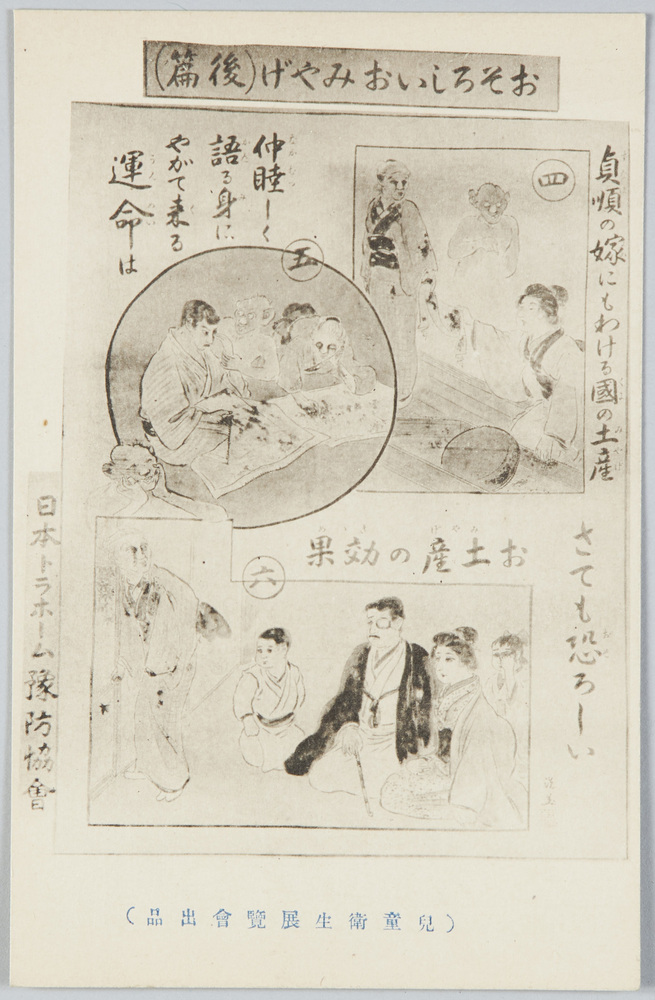 おそろしいおみやげ（後篇）
貞順の嫁にもわける國の土産
四
仲睦しく
語る身に
やがて来る
運命は
五
お土産の効果
六
さても恐ろしい
日本トラホーム豫防協會
（兒童衛生展覽會出品）